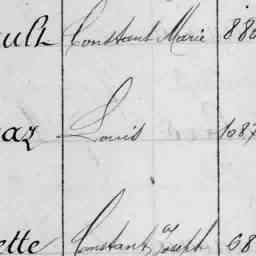 ult Constant Marie 880
az Louis 1087
ette Constant Joseph 68